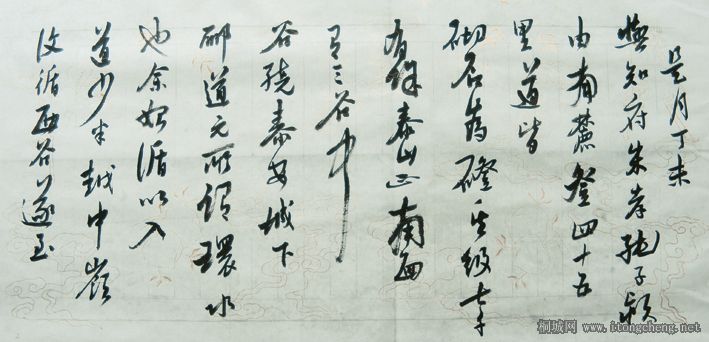 是月丁未
與知府朱孝純子潁
由南麓登四十五
里道皆
砌石為磴其級七千
有餘泰山正南面
有三谷中
谷繞泰安城下
酈道元所謂環水
也余始循以入
道少半越中嶺
復循西谷遂至
桐城网 www.itongcheng.net